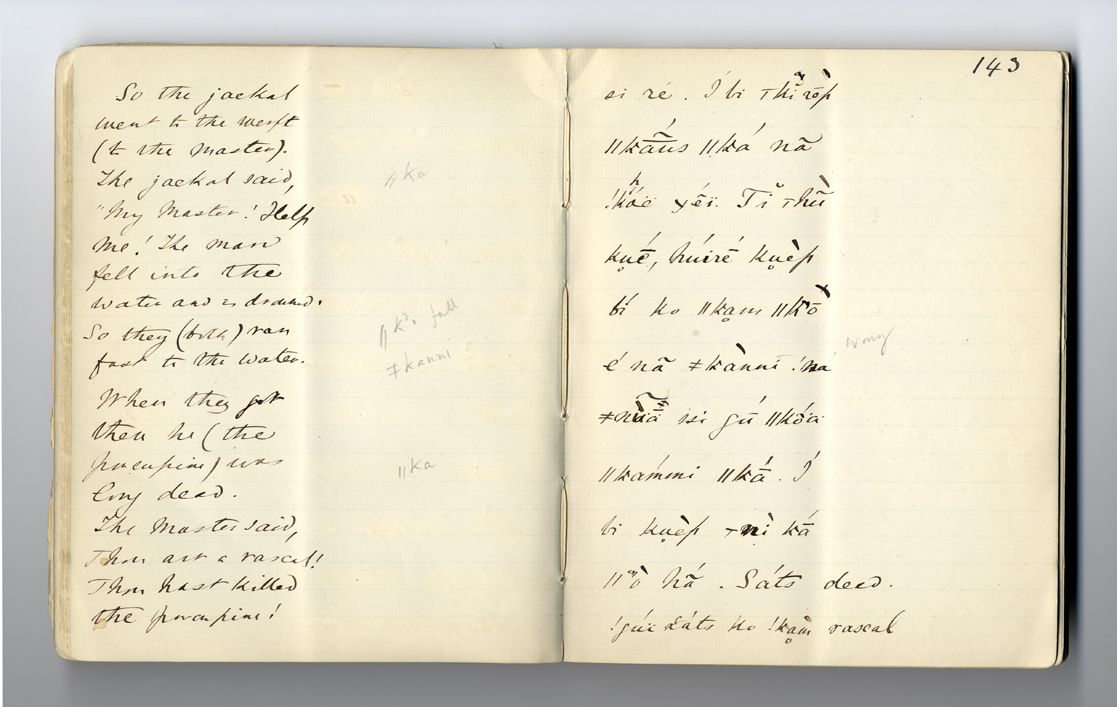 So the jackal
went to the werft
(to the master).
The jackal said,
"My Master! Help
me! The man
fell into the
water and is dround.
So they (both) ran
fast to the water.
When they got
then he (the
porcupine) was
long dead.
The Master said,
Thou art a rascal!
Thou hast killed
the porcupine!
ǁka
fall
ǂkanni
ǁka
143
si ré. Í bi
ǁká nã
kuẽ, húiré kuèp
bí ko ǁkam ǁkō
é nã ǂkànni ǃná
isi gú ǁkṓa
ǁkámmi ǁkā́. Í
bi kuèp kā́
hā́. Sáts dead.
ǃgúï ko ǃkam rascal